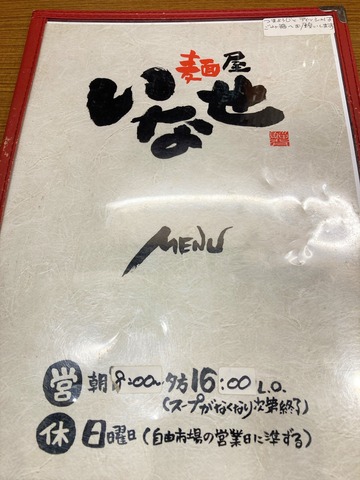 麺屋
いなせ
MENU
営 朝8:00~夕方16:00 L.O.
(スープがなくなり次第終了)
休 日曜日(自由市場の営業日に準ずる)